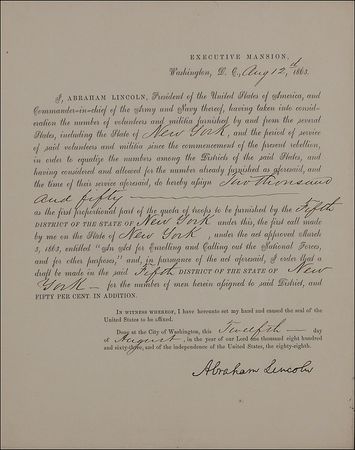 EXECUTIVE MANSION,
Washington, D. C., Aug 12,th 1863.
I, ABRAHAM LINCOLN, President of the United States of America, and
Commander-in-chief of the Army and Navy thereof, having taken into consid-
eration the number of volunteers and militia furnished by and from the several
States, including the State of New York, and the period of service
of said volunteers and militia since the commencement of the present rebellion,
in order to equalize the numbers among the Districts of the said States, and
having considered and allowed for the number already furnished as aforesaid, and
the time of their service aforesaid, do hereby assign Two thousand
and fifty
as the first proportional part of the quota of troops to be furnished by the Fifth
DISTRICT OF THE STATE OF New York under this, the first call made
by me on the State of New York, under the act approved March
3, 1863, entitled "An Act for Enrolling and Calling out the National Forces,
and for other purposes," and, in pursuance of the act aforesaid, I order that a
draft be made in the said Fifth DISTRICT OF THE STATE OF New
York for the number of men herein assigned to said District, and
FIFTY PER CENT. IN ADDITION.
IN WITNESS WHEREOF, I have hereunto set my hand and caused the seal of the
United States to be affixed.
Done at the City of Washington, this Twelfth day
of August, in the year of our Lord one thousand eight hundred
and sixty-three, and of the independence of the United States, the eighty-eighth.
Abraham Lincoln